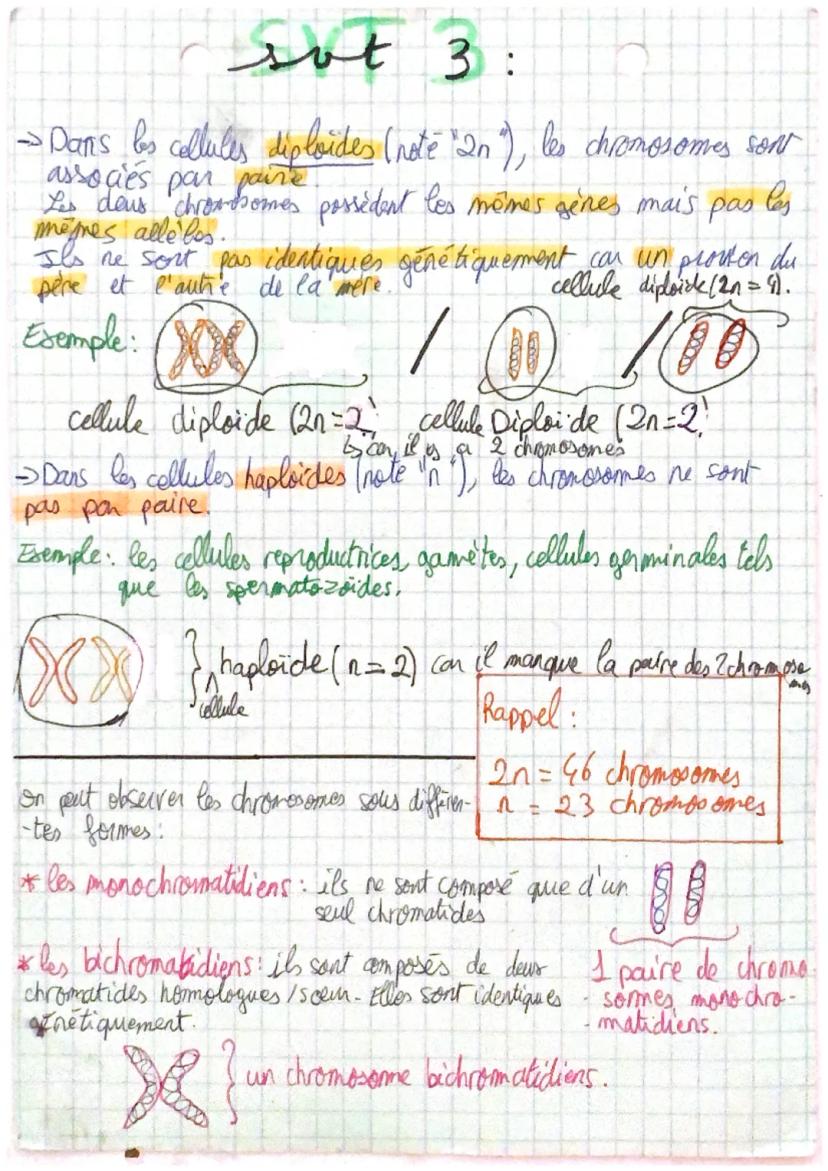 SVT 3
svt 3 :
→ Dans les cellules diploïdes (noté "2n"), les chromosomes sont
associés par paire.
Les deux chromosomes possèdent les mêmes gènes mais pas les
mêmes allèles.
Ils ne sont pas identiques génétiquement car un provien du
père et l'autre de la mère.
cellule diploïde (2n = 4).
Exemple: / /
cellule diploïde (2n=2) cellule Diploïde (2n=2)
↳ car il y a 2 chromosomes
→ Dans les cellules haploïdes (noté "n"), les chromosomes ne sont
pas par paire.
Exemple: les cellules reproductrices, gamètes, cellules germinales tels
que les spermatozoïdes.
haploïde (n = 2) car il manque la paire des 2 chromoso
mes
cellule
Rappel :
2n = 46 chromosomes
n = 23 chromosomes
On peut observer les chromosomes sous différen-
-tes formes :
* les monochromatidiens : ils ne sont composé que d'un
seul chromatides
* les bichromatidiens : ils sont composés de deux
chromatides homologues / sœur. Elles sont identiques
génétiquement.
1 paire de chromo
- somes monochro-
- matidiens.
un chromosome bichromatidiens.